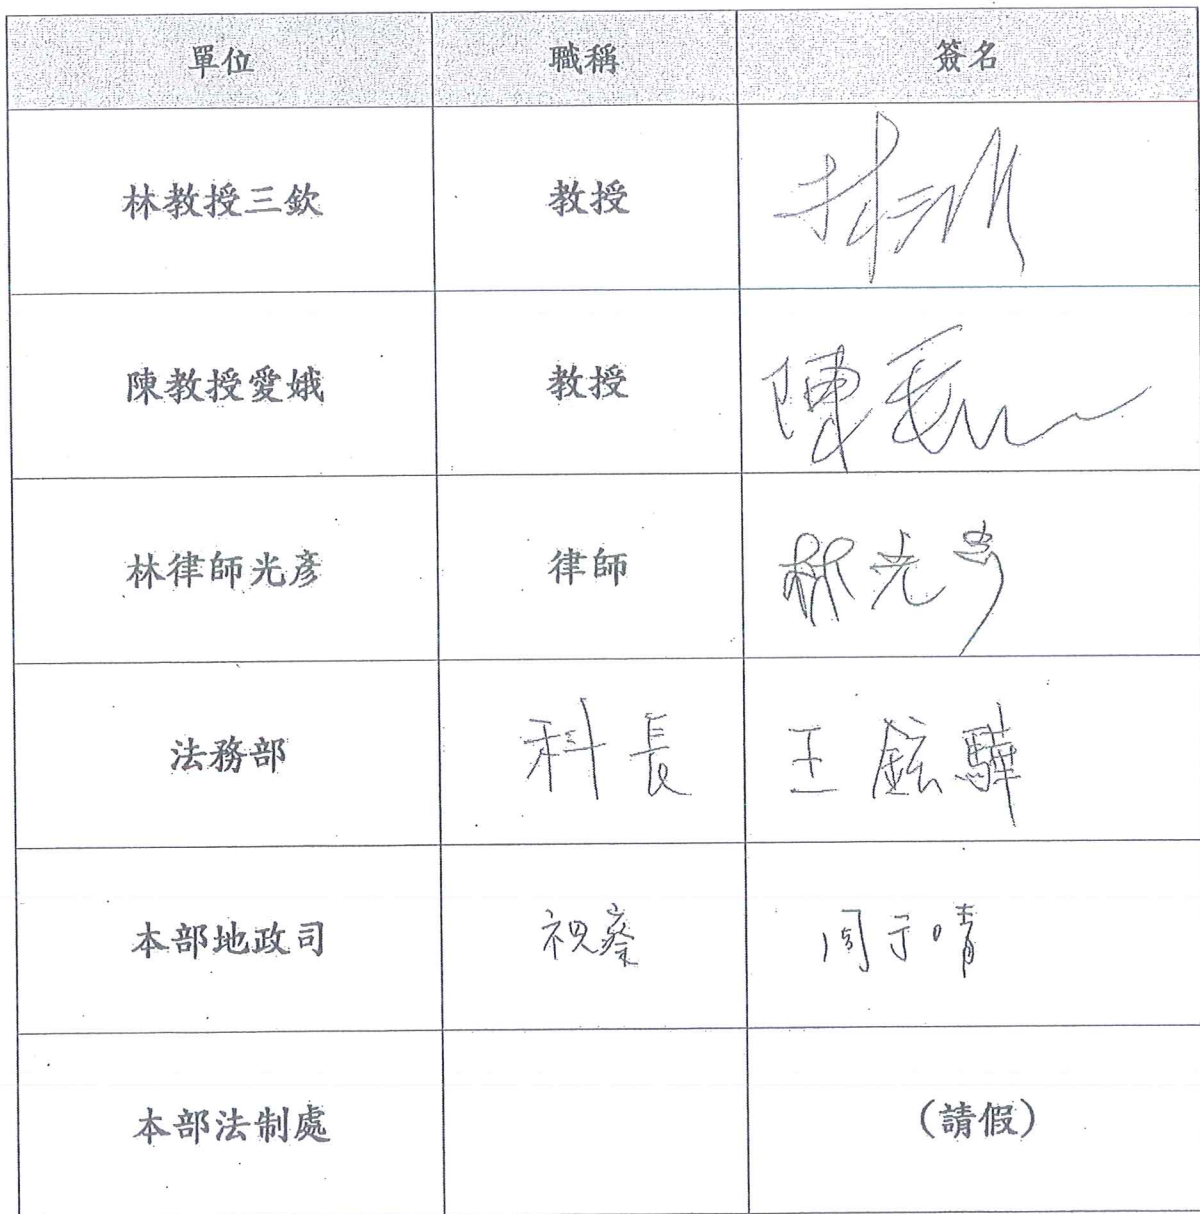 單位 職稱 簽名
林教授三欽 教授 林三欽
陳教授愛娥 教授 陳愛娥
林律師光彥 律師 林光彥
法務部 科長 王鋐驊
本部地政司 視察 周于晴
本部法制處 (請假)